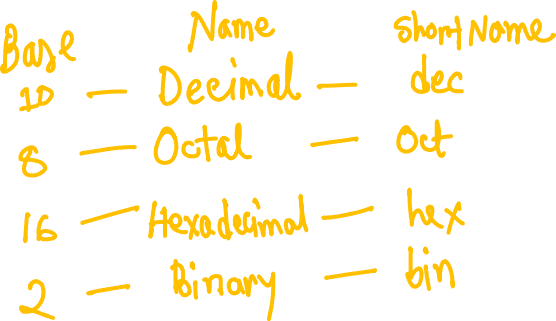 Base Name Short Name
10 — Decimal — dec
8 — Octal — Oct
16 — Hexadecimal — hex
2 — Binary — bin